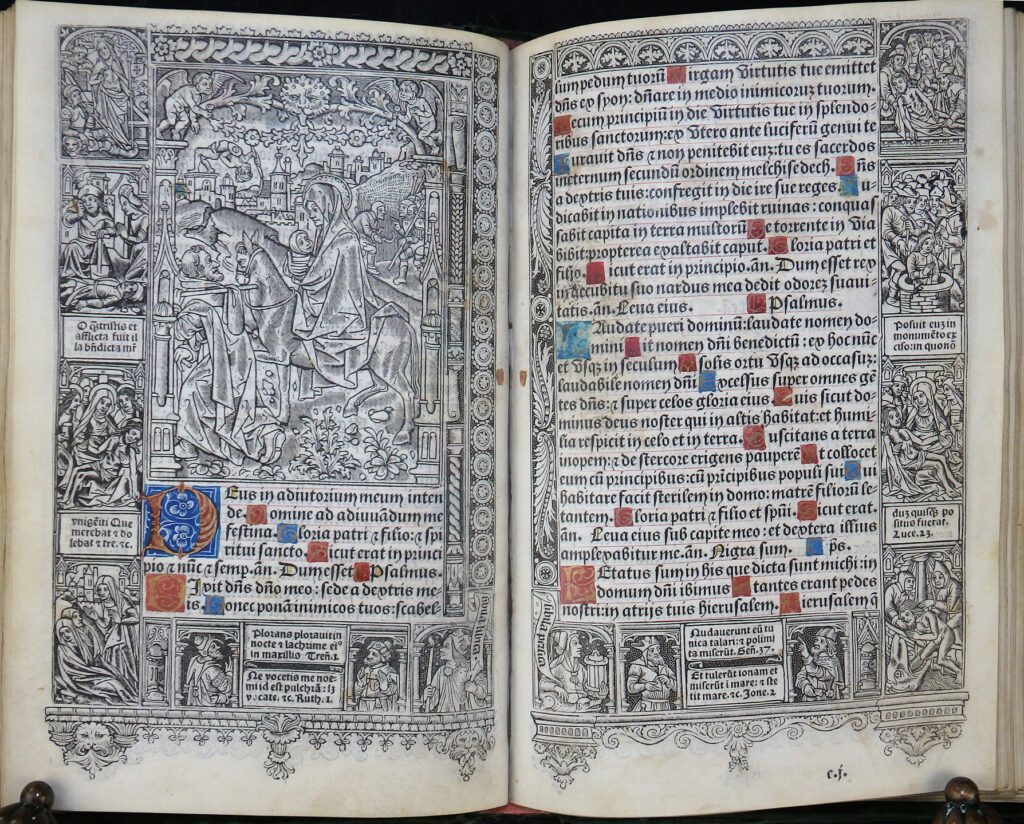 O q̃ tristis et
afflicta fuit il
la bñdicta mr̃
vnigẽiti Que
merebat ⁊ do
lebat ⁊ tre. ⁊c.
Deus in adiutorium meum inten
de. Domine ad adiuuãdum me
festina. Gloria patri ⁊ filio: ⁊ spi
ritui sancto. Sicut erat in princi
pio ⁊ nũc ⁊ semp. añ. Dum esset Psalmus.
Dixit dñs dño meo: sede a dextris me
is. Donec ponã inimicos tuos: scabel
Plorans plorauit in
nocte ⁊ lachrime eiꝰ
in maxillis Treñ. 1.
Ne vocetis me noe
mi id est pulchrã: sz
vocate. ⁊c. Ruth. 1.
lum pedum tuorũ Virgam virtutis tue emittet
dñs ex syon: dñare in medio inimicoruꝫ tuorum.
Tecum principiũ in die virtutis tue in splendo-
ribus sanctorum: ex vtero ante luciferũ genui te
Iurauit dñs ⁊ non penitebit euꝫ: tu es sacerdos
ineternum secundũ ordinem melchisedech. Dñs
a dextris tuis: confregit in die ire sue reges. Iu-
dicabit in nationibus implebit ruinas: conquas
sabit capita in terra multorũ De torrente in via
bibit: propterea exaltabit caput. Gloria patri et
filio. Sicut erat in principio. añ. Dum esset rex
in accubitu suo nardus mea dedit odorez suaui-
tatis. añ. Leua eius. Psalmus.
Laudate pueri dominũ: laudate nomen do-
mini Sit nomen dñi benedictũ: ex hoc nũc
et vsqꝫ in seculum A solis ortu vsqꝫ ad occasuꝫ:
laudabile nomen dñi Excelsus super omnes gẽ
tes dñs: ⁊ super celos gloria eius. Quis sicut do-
minus deus noster qui in altis habitat: et humi-
lia respicit in celo et in terra. Suscitans a terra
inopem: ⁊ de stercore erigens pauperẽ Ut collocet
eum cũ principibus: cũ prĩcipibus populi sui Qui
habitare facit sterilem in domo: matrẽ filiorũ le-
tantem. Gloria patri ⁊ filio et spũi. Sicut erat.
añ. Leua eius sub capite meo: et dextera illius
amplexabitur me. añ. Nigra sum. ps.
Letatus sum in his que dicta sunt michi: in
domum dñi ibimus Stantes erant pedes
nostri: in atrijs tuis hierusalem. Hierusalem q̃
Posuit euꝫ in
monumẽto ex
ciso: in quo nõ
duꝫ quisqꝫ po
situs fuerat.
Luce. 23.
sibilla persica
Nudauerunt eũ tu
nica talari: ⁊ polimi
ta miserũt. Geñ. 37.
Et tulerũt ionam et
miserũt i mare: ⁊ ste
tit mare. ⁊c. Jone. 2
c.j.